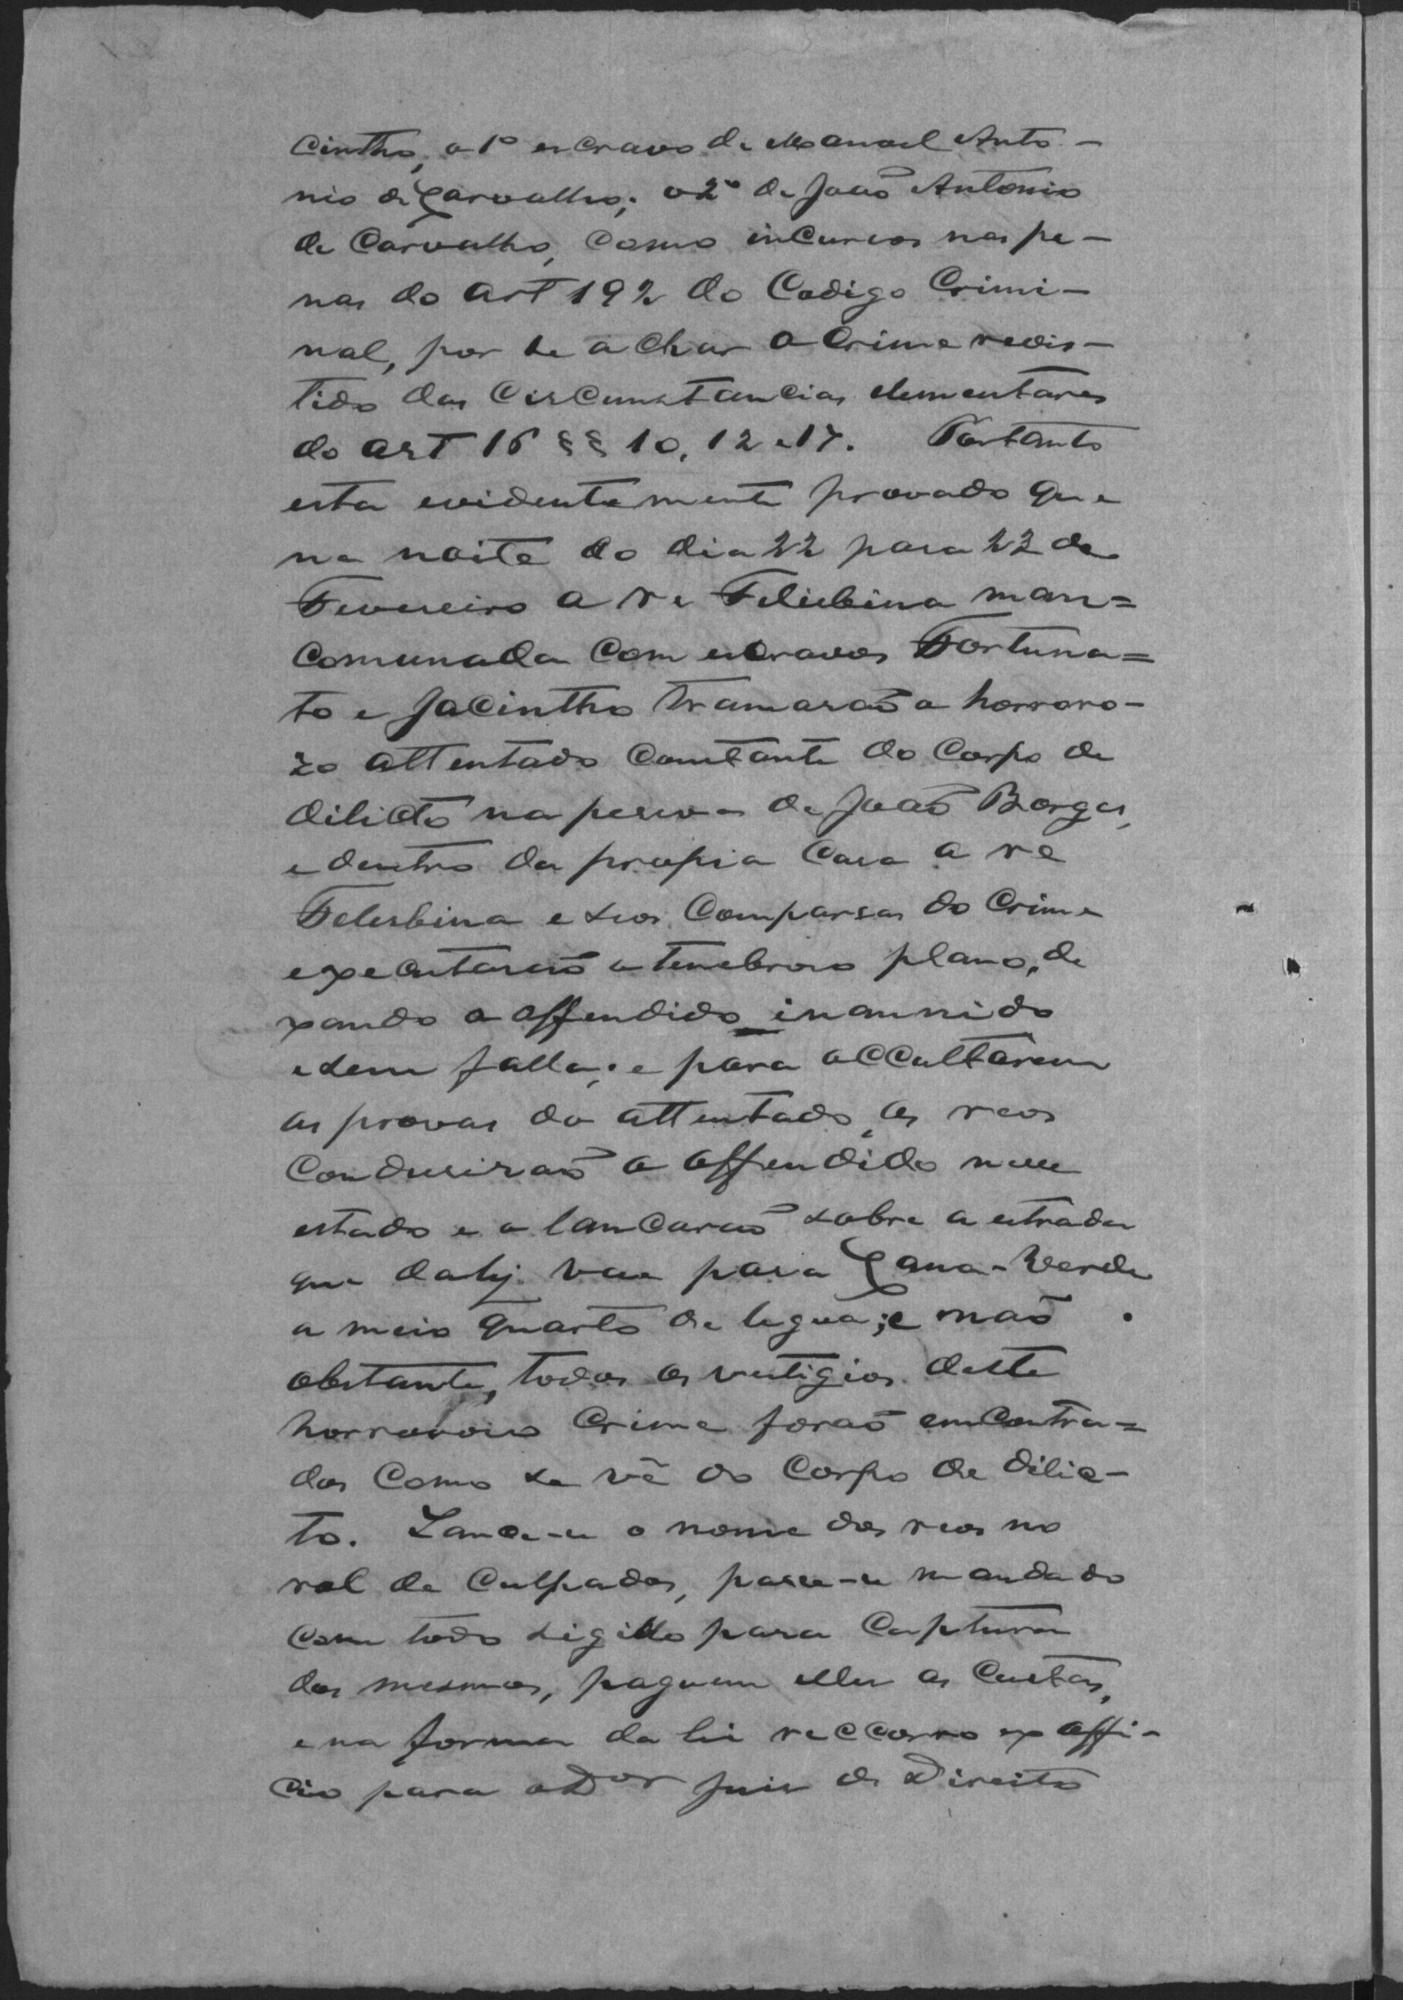 cintho, o 1º escravo de Manoel Anto-
nio de Carvalho; o 2º de João Antonio
de Carvalho, como incursos nas pe-
nas do art 192 do Codigo Crimi-
nal, por se achar o crime revis-
tido das circunstancias elementares
do art 16 §§ 10, 12 e 17. Portanto
esta evidentemente provado que
na noite do dia 22 para 23 de
Fevereiro a re Felisbina man=
comunada com escravos Fortuna=
to e Jacintho tramarão o horroro-
zo attentado constante do corpo de
dilicto na pessoa de João Borges,
e dentro da propia casa a re
Felisbina e seos comparsas do crime
executarão o tenebroso plano, de
xando o offendido inannido
e sem falla; e para occultarem
as provas do attentado, os reos
condusirão o offendido nesse
estado e o lancarão sobre a estrada
que dahy vae para Cana-Verde
a meio quarto de legua; e não
obstante, todos os vestigios deste
horroroso crime forão emcontra=
dos como se vê do corpo de dilic-
to. Lance-se o nome dos reos no
rol de culpados, passe-se mandado
com todo sigillo para captura
dos mesmos, paguem elles as custas,
e na forma da lei reccorro ex offi-
cio para o Dor Juis de Direito